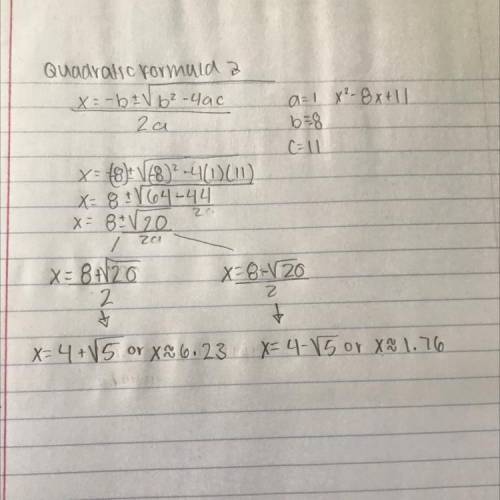 Quadratic formula 2
x = -b ± √b² - 4ac a=1 x² - 8x + 11
2a b=8
c=11
x = (-8) ± √(-8)² - 4(1)(11)
x = 8 ± √64 - 44
2a
x = 8 ± √20
2a
x = 8 + √20 x = 8 - √20
2 2
↓ ↓
x = 4 + √5 or x ≈ 6.23 x = 4 - √5 or x ≈ 1.76